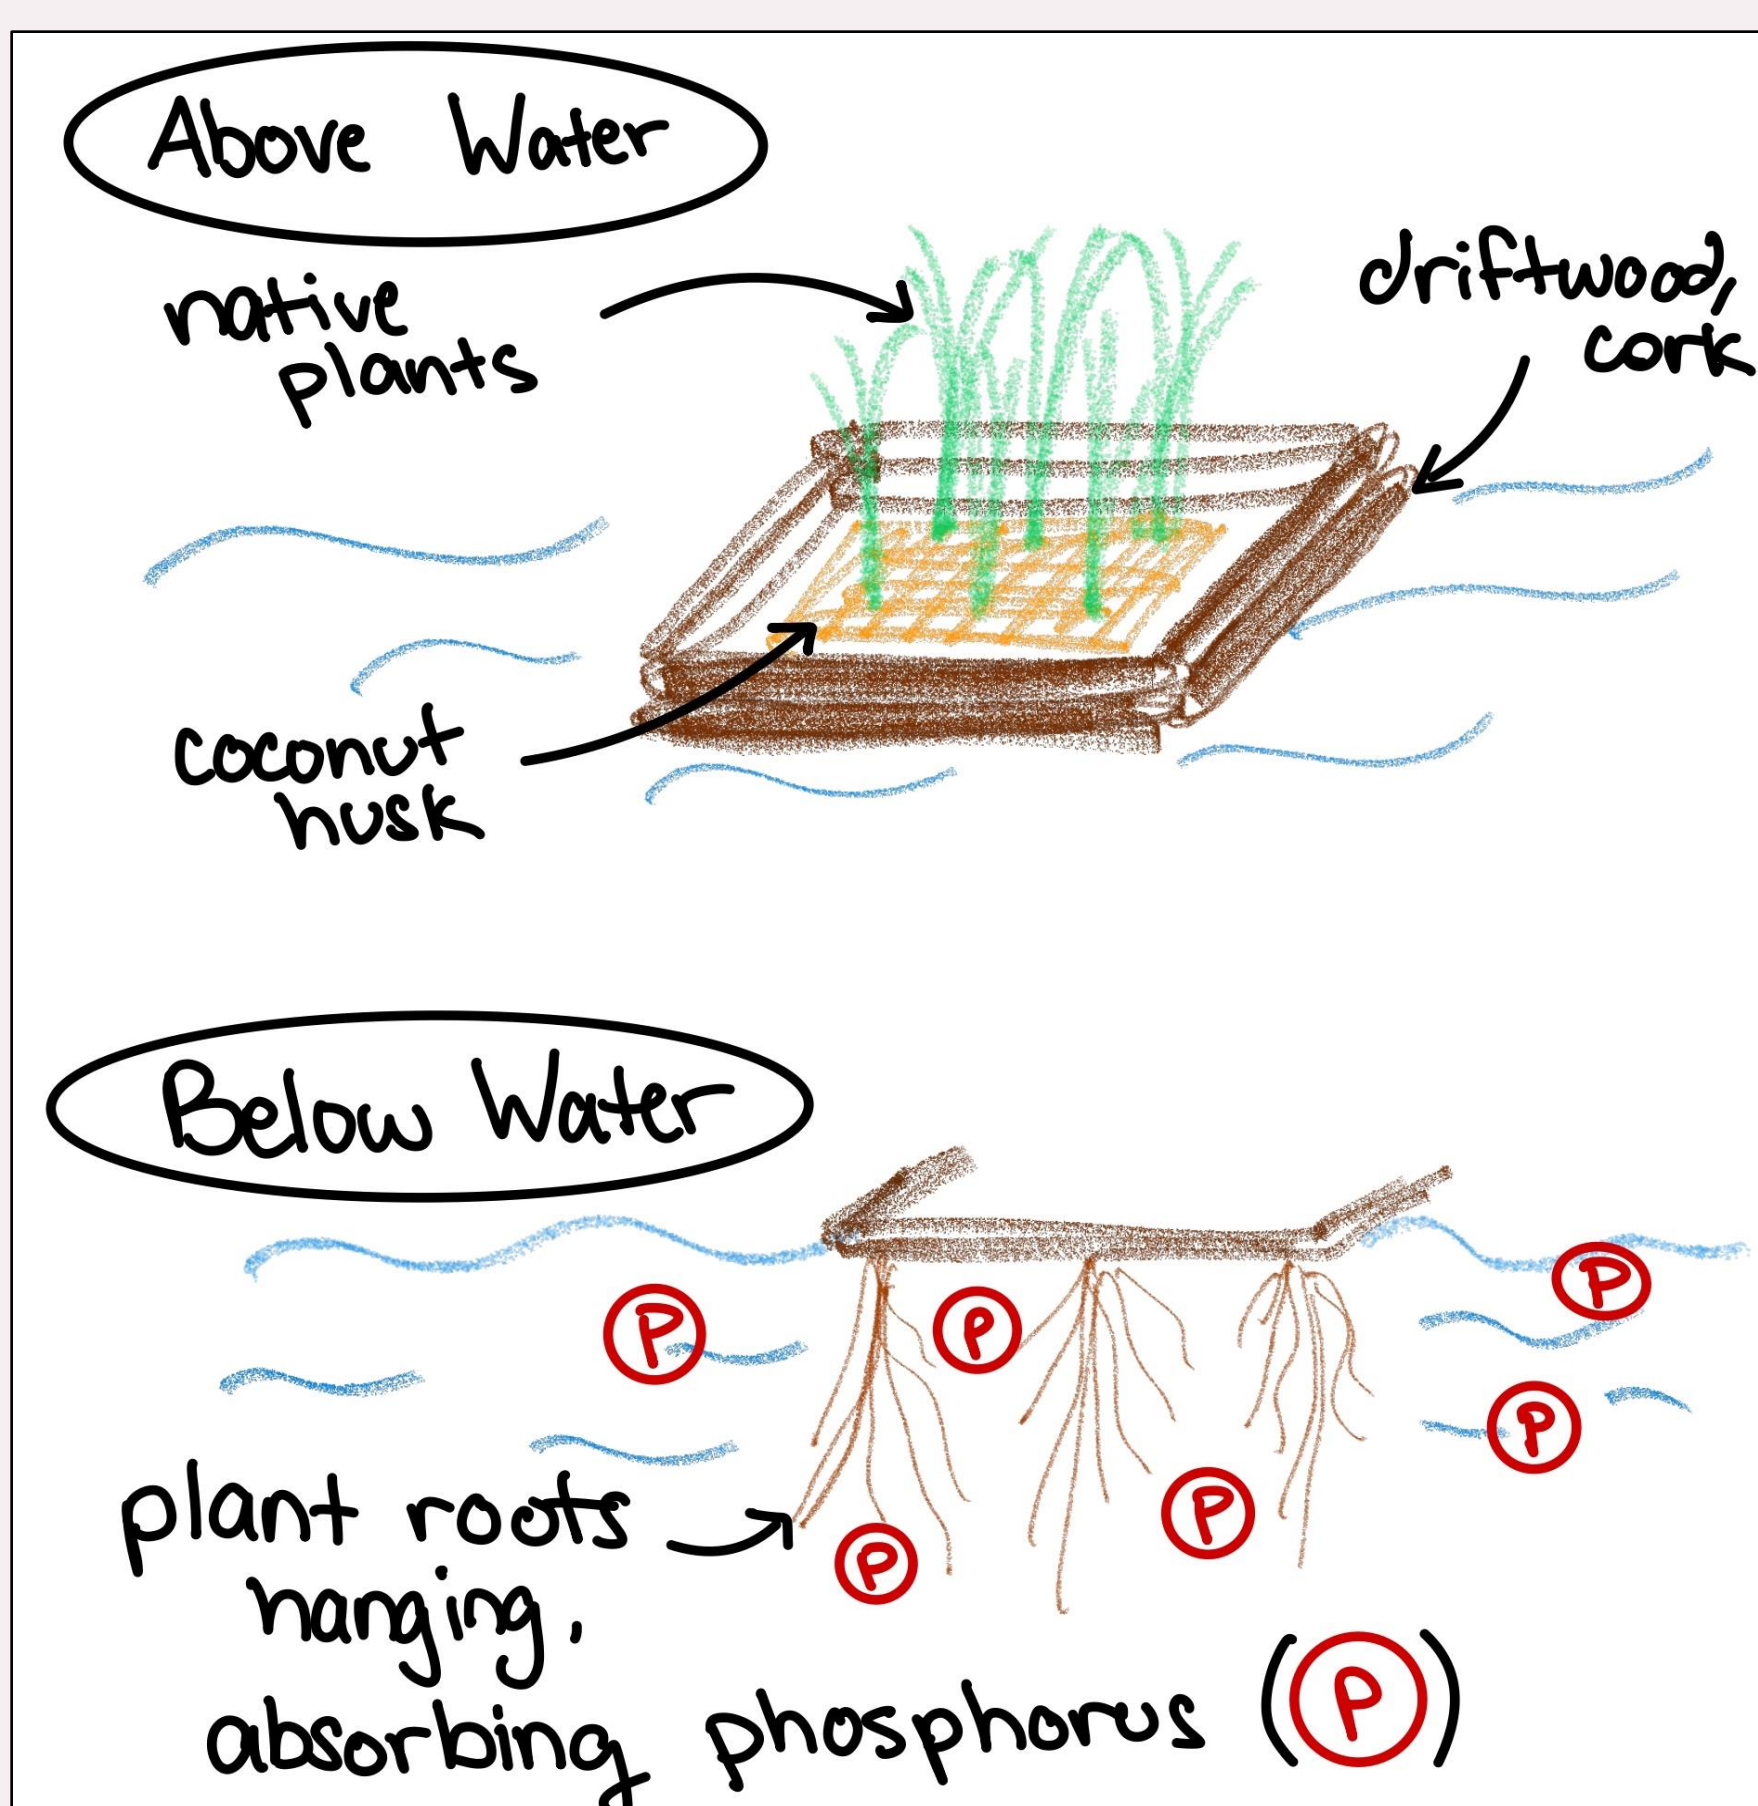 Above Water
native
plants
driftwood,
cork
coconut
husk
Below Water
P
P
P
P
P
P
plant roots
hanging,
absorbing phosphorus (P)